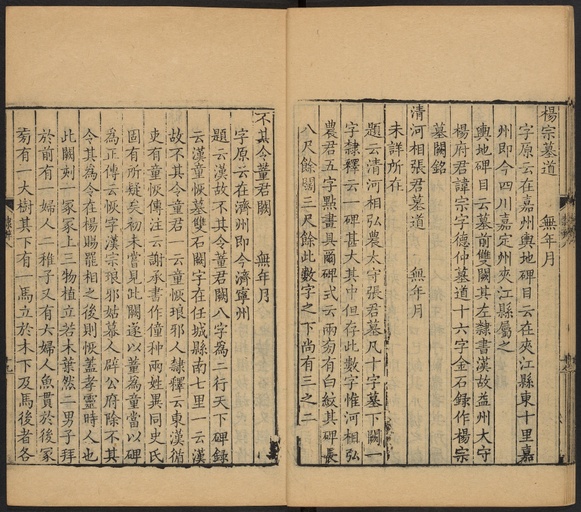 楊宗墓道 無年月
字原云在嘉州輿地碑目云在夾江縣東十里嘉
州即今四川嘉定州夾江縣屬之
輿地碑目云墓前雙闕其左隸書漢故益州大守
楊府君諱宗字德仲墓道十六字金石錄作楊宗
墓闕銘
清河相張君墓道 無年月
未詳所在
題云清河相弘農太守張君墓凡十字墓下闕一
字隸釋云一碑甚大其中但存此數字惟河相弘
農君五字點畫具蘭碑式云兩旁有白紋其碑長
八尺餘闊三尺餘此數字之下尚有三之二
不其令董君闕 無年月
字原云在濟州即今濟寧州
題云漢故不其令董君闕八字為二行天下碑錄
云漢童恢墓雙石闕字在任城縣南七里一云漢
故不其令童君一云童恢琅邪人隸釋云東漢循
吏有童恢傳注云謝承書作僮种兩姓異同史氏
固有所疑矣初未嘗見此闕遂以董為童當以碑
為正傳云恢字漢宗琅邪姑幕人辟公府除不其
令其為令在楊賜罷相之後則恢蓋孝靈時人也
此闕刻一冢冢上三物植立若木葉然二男子拜
於前有一婦人二稚子又有大婦人魚貫於後冢
旁有一大樹其下有一馬立於木下及馬後者各